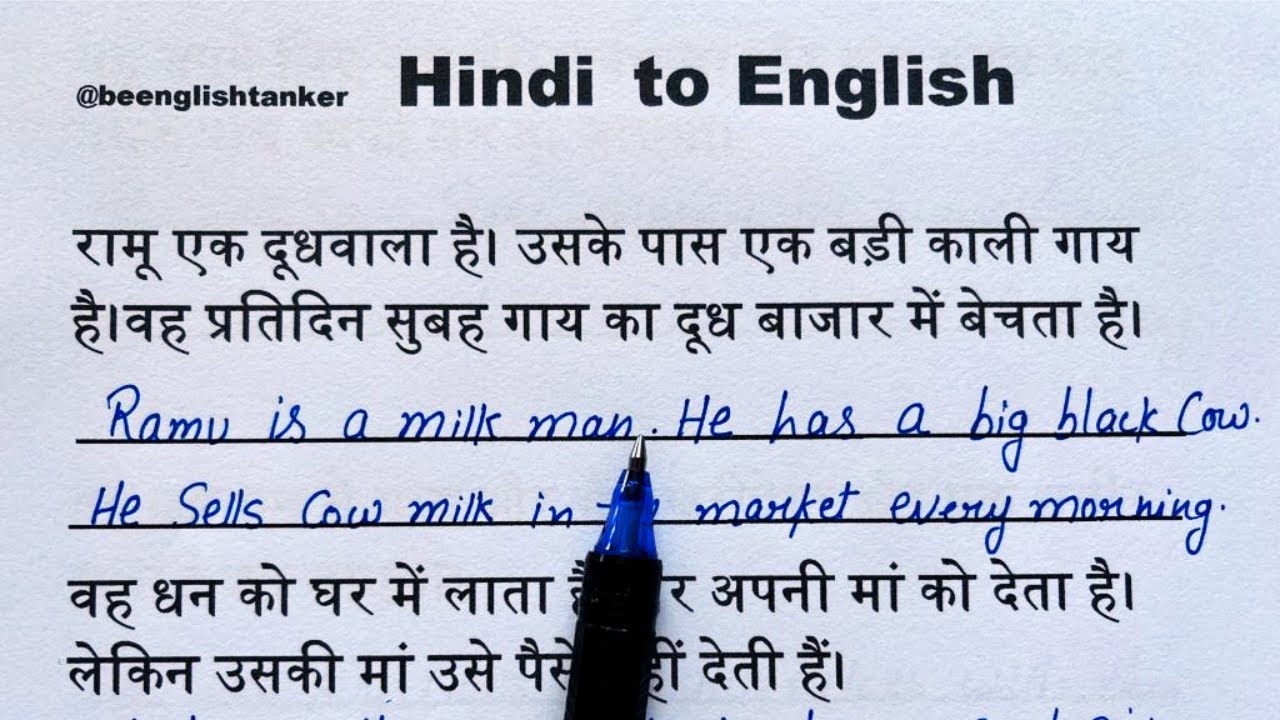 @beenglishtanker Hindi to English
रामू एक दूधवाला है। उसके पास एक बड़ी काली गाय
है।वह प्रतिदिन सुबह गाय का दूध बाजार में बेचता है।
Ramu is a milk man. He has a big black Cow.
He Sells Cow milk in market every morning.
वह धन को घर में लाता अपनी मां को देता है।
लेकिन उसकी मां उसे देती हैं।